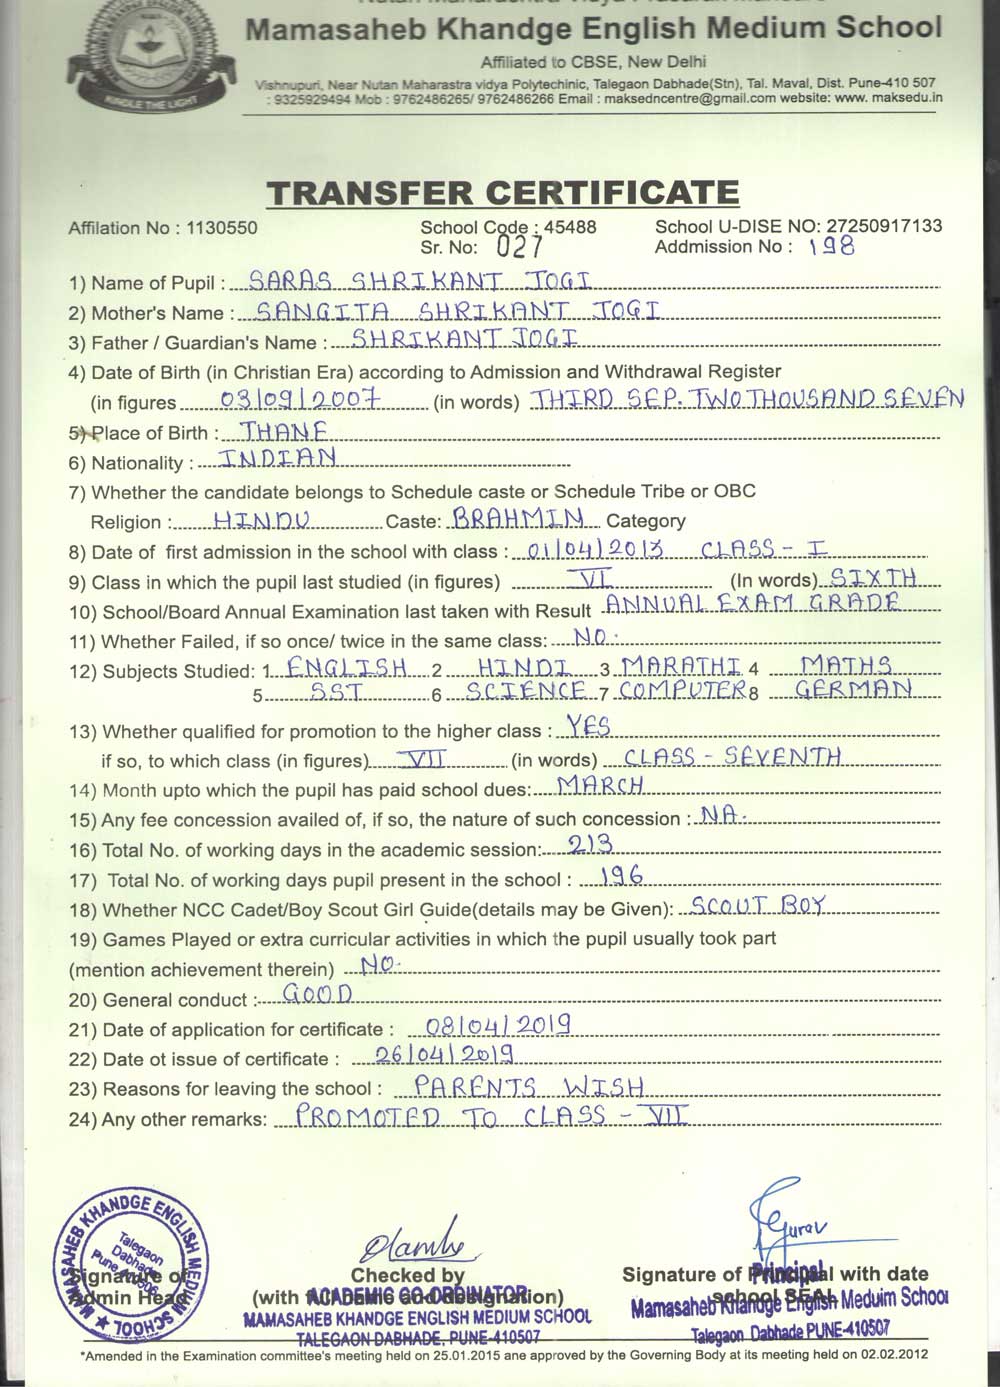 Mamasaheb Khandge English Medium School
Affiliated to CBSE, New Delhi
Vishnupuri, Near Nutan Maharastra vidya Polytechinic, Talegaon Dabhade(Stn), Tal. Maval, Dist. Pune-410 507
: 9325929494 Mob : 9762486265/ 9762486266 Email : maksedncentre@gmail.com website: www. maksedu.in
KINDLE THE LIGHT
TRANSFER CERTIFICATE
Affilation No : 1130550 School Code : 45488 School U-DISE NO: 27250917133
Sr. No: 027 Addmission No : 198
1) Name of Pupil : SARAS SHRIKANT JOGI
2) Mother's Name : SANGITA SHRIKANT JOGI
3) Father / Guardian's Name : SHRIKANT JOGI
4) Date of Birth (in Christian Era) according to Admission and Withdrawal Register
(in figures 03/09/2007 (in words) THIRD SEP. TWO THOUSAND SEVEN
5) Place of Birth : THANE
6) Nationality : INDIAN
7) Whether the candidate belongs to Schedule caste or Schedule Tribe or OBC
Religion : HINDU Caste: BRAHMIN Category
8) Date of first admission in the school with class : 01/04/2013 CLASS - I
9) Class in which the pupil last studied (in figures) VI (In words) SIXTH
10) School/Board Annual Examination last taken with Result ANNUAL EXAM GRADE
11) Whether Failed, if so once/ twice in the same class: NO.
12) Subjects Studied: 1. ENGLISH 2 HINDI 3 MARATHI 4 MATHS
5 SST 6 SCIENCE 7 COMPUTER 8 GERMAN
13) Whether qualified for promotion to the higher class : YES
if so, to which class (in figures) VII (in words) CLASS - SEVENTH
14) Month upto which the pupil has paid school dues: MARCH
15) Any fee concession availed of, if so, the nature of such concession : NA.
16) Total No. of working days in the academic session: 213
17) Total No. of working days pupil present in the school : 196
18) Whether NCC Cadet/Boy Scout Girl Guide(details may be Given): SCOUT BOY
19) Games Played or extra curricular activities in which the pupil usually took part
(mention achievement therein) NO.
20) General conduct : GOOD
21) Date of application for certificate : 08/04/2019
22) Date ot issue of certificate : 26/04/2019
23) Reasons for leaving the school : PARENTS WISH
24) Any other remarks: PROMOTED TO CLASS - VII
MAMASAHEB KHANDGE ENGLISH MEDIUM SCHOOL
Talegaon
Dabhade
Gurav
Signature of Checked by Signature of Principal with date
Admin Head (with full name and designation) school SEAL
ACADEMIC CO-ORDINATOR
MAMASAHEB KHANDGE ENGLISH MEDIUM SCHOOL
TALEGAON DABHADE, PUNE-410507
Principal
Mamasaheb Khandge English Meduim School
Talegaon Dabhade PUNE-410507
*Amended in the Examination committee's meeting held on 25.01.2015 ane approved by the Governing Body at its meeting held on 02.02.2012